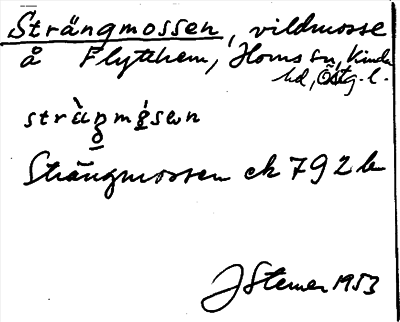 Strängmossen, vildmosse
å Flytthem, Horns sn, Kinda
hd, Östg. l.
Strängmossen ek 792 b
J Stemer 1953